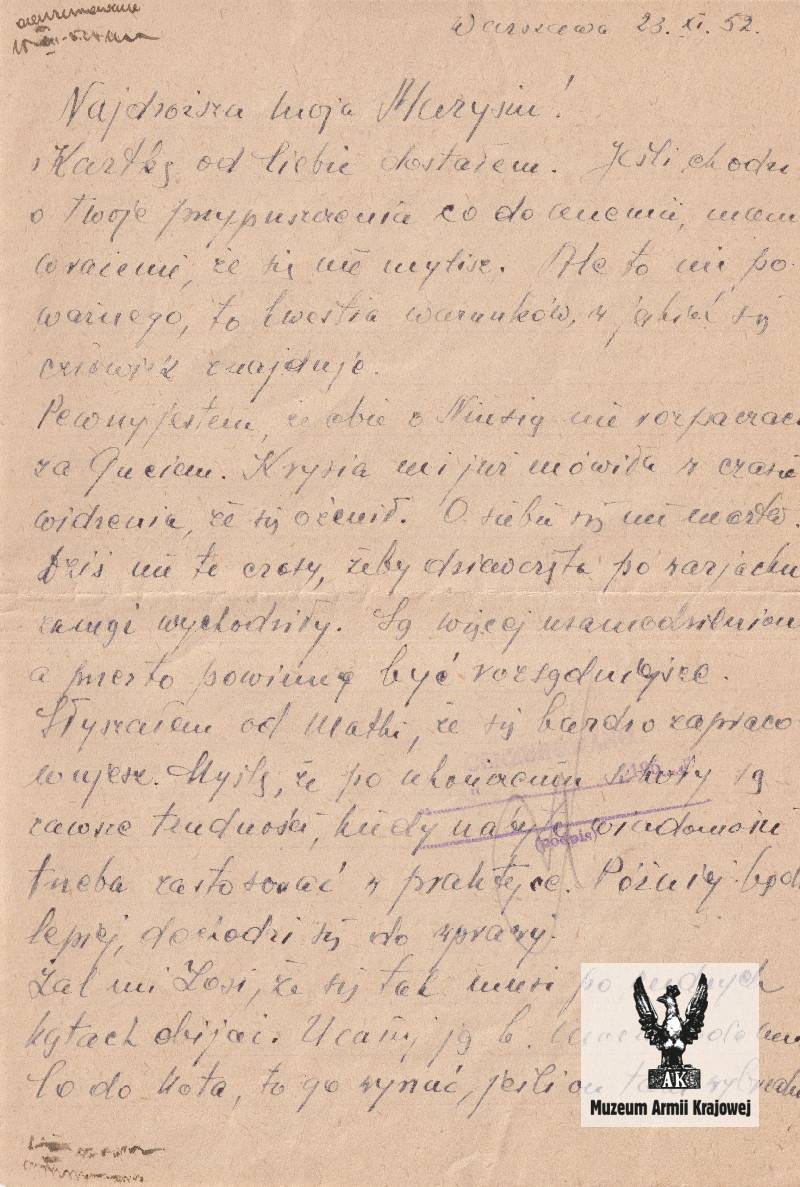 ocenzurowane
Warszawa 23. XI. 52.
Najdroższa moja Marysiu!
Kartkę od Ciebie dostałem. Jeśli chodzi
o twoje przypuszczenia co do anemii, mam
wrażenie, że się nie mylisz. Ale to nic po-
ważnego, to kwestia warunków, w jakich się
człowiek znajduje.
Pewny jestem, że obie z Niusią nie rozpaczac
za Guciem. Krysia mi już mówiła w czasie
widzenia, że się ożenił. O siebie się nie martw.
Dziś nie te czasy, żeby dziewczęta po
zamąż wychodziły. Są więcej usamodzielnion
a przez to powinny być rozsądniejsze.
Słyszałem od Matki, że się bardzo zapraco-
wujesz. Myślę, że po ukończeniu szkoły są
zawsze trudności, kiedy nabyte wiadomości
(podpis)
trzeba zastosować w praktyce. Później będz
lepiej, dochodzi się do wprawy.
Żal mi Zosi, że się tak musi po
kątach obijać. Ucałuj ją b.
Co do kota, to go wynać, jeśli on
AK
Muzeum Armii Krajowej